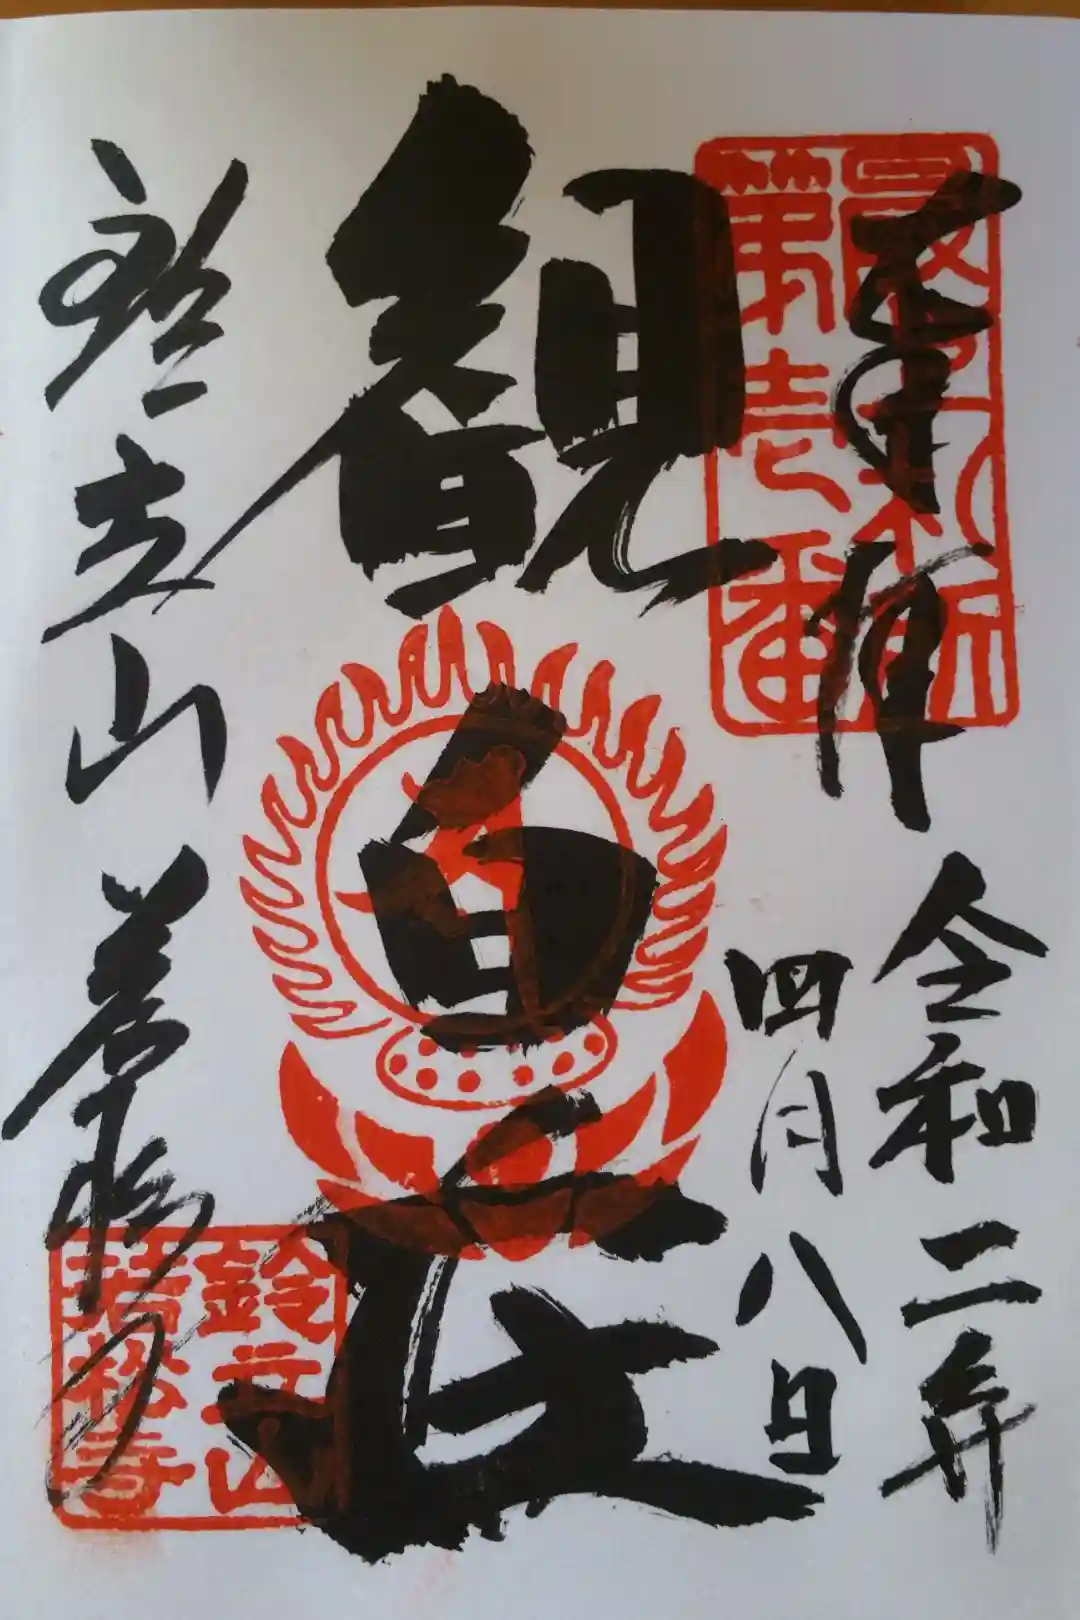 奉拝
令和二年
四月八日
最上札所
第壱番
観自在
鈴立山 若松寺
鈴立山
若松寺